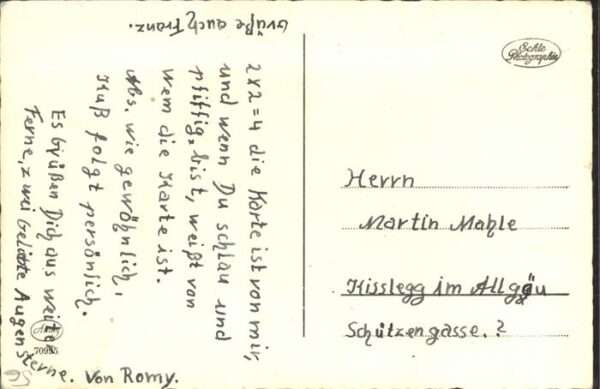 2x2=4 die Karte ist von mir,
und wenn Du schlau und
pfiffig, bist, weißt von
wem die Karte ist.
Abs. wie gewöhnlich,
Kuß folgt persönlich.
Es grüßen Dich aus weiter
Ferne, zwei geliebte Augensterne. Von Romy.
Grüße auch Franz.
Echte
Photographie
Herrn
Martin Mahle
Kisslegg im Allgäu
Schützengasse. ?